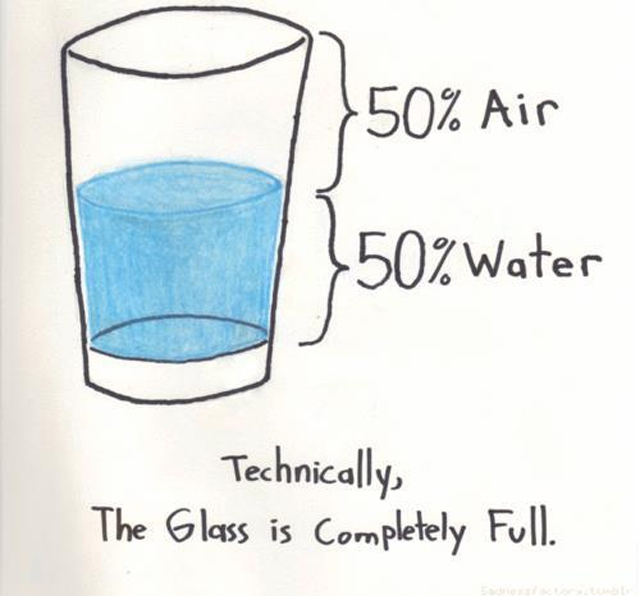 50% Air
50% Water
Technically,
The Glass is Completely Full.
sadnessfactory.tumblr